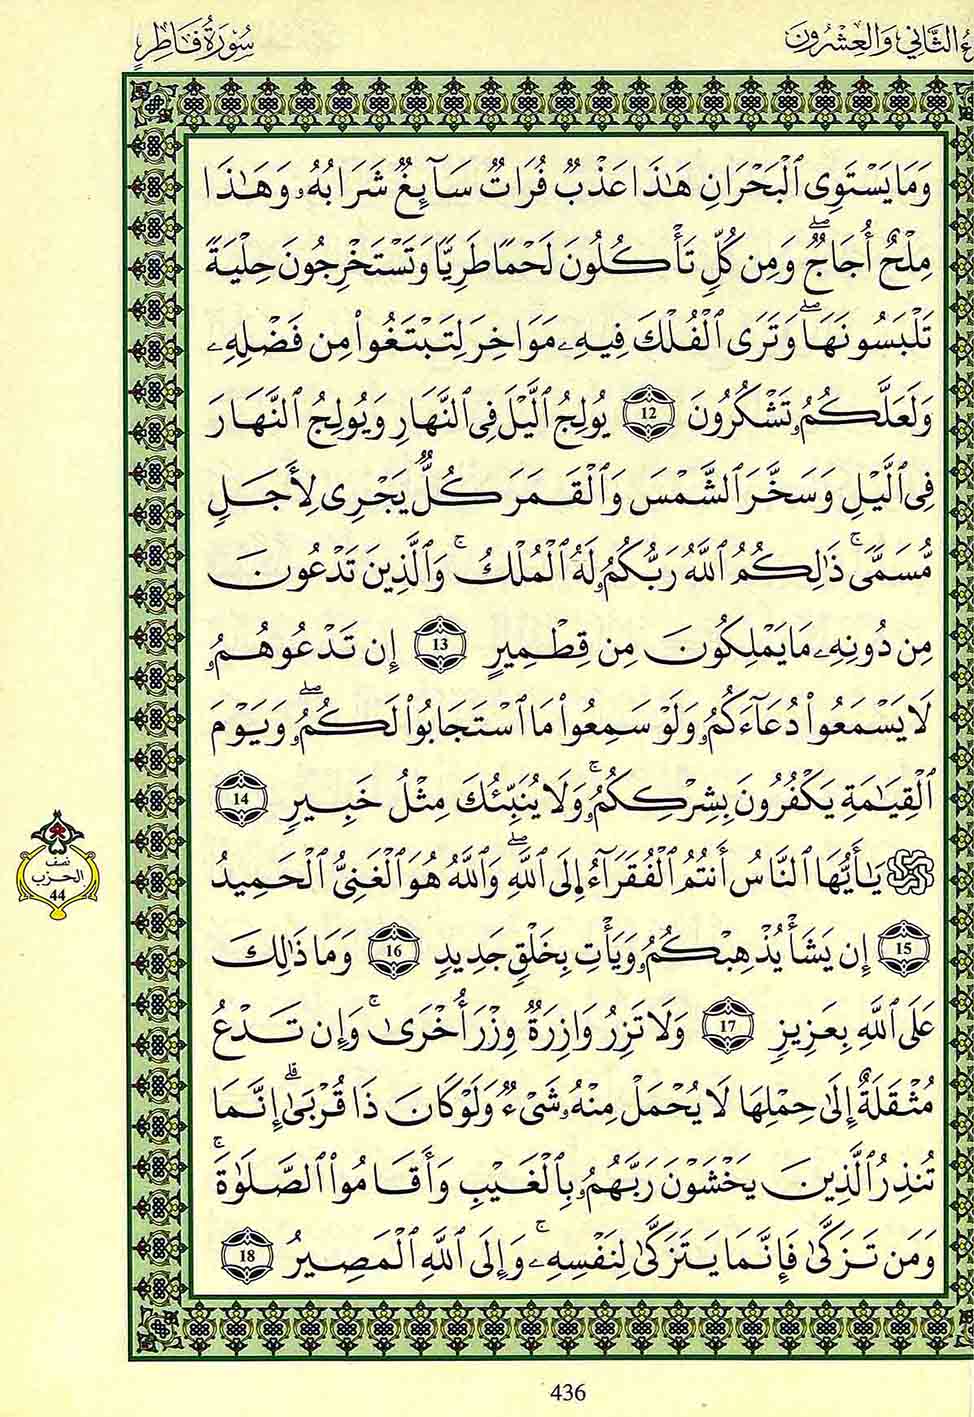 ءُ الثَّانِي وَالعِشْرُونَ
سُورَةُ فَاطِرٍ
وَمَا يَسْتَوِى ٱلْبَحْرَانِ هَٰذَا عَذْبٌ فُرَاتٌ سَآئِغٌ شَرَابُهُۥ وَهَٰذَا
مِلْحٌ أُجَاجٌ ۖ وَمِن كُلٍّ تَأْكُلُونَ لَحْمًا طَرِيًّا وَتَسْتَخْرِجُونَ حِلْيَةً
تَلْبَسُونَهَا ۖ وَتَرَى ٱلْفُلْكَ فِيهِۦ مَوَاخِرَ لِتَبْتَغُوا۟ مِن فَضْلِهِۦ
وَلَعَلَّكُمُۥ تَشْكُرُونَ 12 يُولِجُ ٱلَّيْلَ فِى ٱلنَّهَارِ وَيُولِجُ ٱلنَّهَارَ
فِى ٱلَّيْلِ وَسَخَّرَ ٱلشَّمْسَ وَٱلْقَمَرَ كُلٌّ يَجْرِى لِأَجَلٍ
مُّسَمًّى ۚ ذَٰلِكُمُ ٱللَّهُ رَبُّكُمُۥ لَهُ ٱلْمُلْكُ ۚ وَٱلَّذِينَ تَدْعُونَ
مِن دُونِهِۦ مَا يَمْلِكُونَ مِن قِطْمِيرٍ 13 إِن تَدْعُوهُمُۥ
لَا يَسْمَعُوا۟ دُعَآءَكُمُۥ وَلَوْ سَمِعُوا۟ مَا ٱسْتَجَابُوا۟ لَكُمُۥ ۖ وَيَوْمَ
ٱلْقِيَٰمَةِ يَكْفُرُونَ بِشِرْكِكُمُۥ ۚ وَلَا يُنَبِّئُكَ مِثْلُ خَبِيرٍ 14
يَٰأَيُّهَا ٱلنَّاسُ أَنتُمُ ٱلْفُقَرَآءُ إِلَى ٱللَّهِ ۖ وَٱللَّهُ هُوَ ٱلْغَنِىُّ ٱلْحَمِيدُ
15 إِن يَشَأْ يُذْهِبْكُمُۥ وَيَأْتِ بِخَلْقٍ جَدِيدٍ 16 وَمَا ذَٰلِكَ
عَلَى ٱللَّهِ بِعَزِيزٍ 17 وَلَا تَزِرُ وَازِرَةٌ وِزْرَ أُخْرَىٰ ۚ وَإِن تَدْعُ
مُثْقَلَةٌ إِلَىٰ حِمْلِهَا لَا يُحْمَلْ مِنْهُۥ شَىْءٌ وَلَوْ كَانَ ذَا قُرْبَىٰٓ ۗ إِنَّمَا
تُنذِرُ ٱلَّذِينَ يَخْشَوْنَ رَبَّهُمُۥ بِٱلْغَيْبِ وَأَقَامُوا۟ ٱلصَّلَوٰةَ ۚ
وَمَن تَزَكَّىٰ فَإِنَّمَا يَتَزَكَّىٰ لِنَفْسِهِۦ ۚ وَإِلَى ٱللَّهِ ٱلْمَصِيرُ 18
نصف
الحزب
44
436